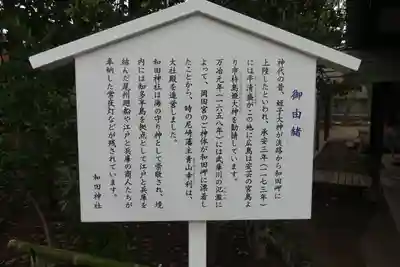 御由緒
神代の昔、蛭子大神が淡路から和田岬に
上陸したといわれ、承安三年(一一七三年)
には平清盛がこの地に広島は安芸の宮島よ
り市杵嶋姫大神を勧請しています。
万治元年(一六五八年)には武庫川の氾濫に
よって、岡田宮のご神体が和田岬に漂着し
たことから、時の尼崎藩主青山幸利は、
大社殿を造営しました。
和田神社は海の守り神として崇敬され、境
内には知多半島を拠点として江戸と兵庫を
結んだ尾州廻船や江戸と兵庫の商人たちが
奉納した常夜灯などが残されています。
和田神社